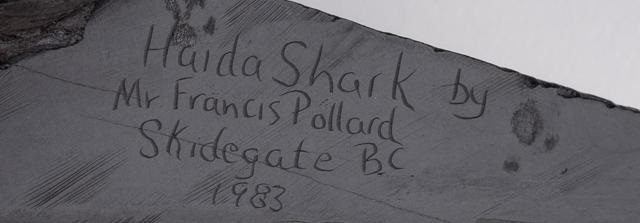 Haida Shark by
Mr Francis Pollard
Skidegate BC
1983